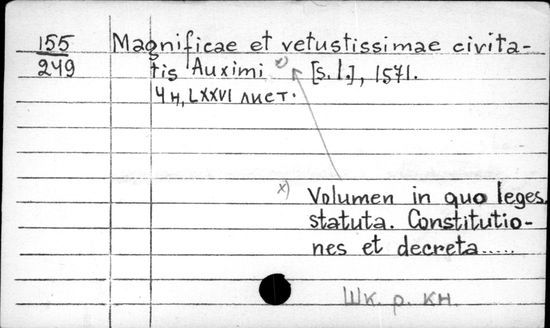 155
249
Magnificae et vetustissimae civita-
tis Auximi x) [s.l.], 1571.
4 н, LXXVI лист.
x) Volumen in quo leges,
statuta. Constitutio-
nes et decreta.....
Шк. р. кн.